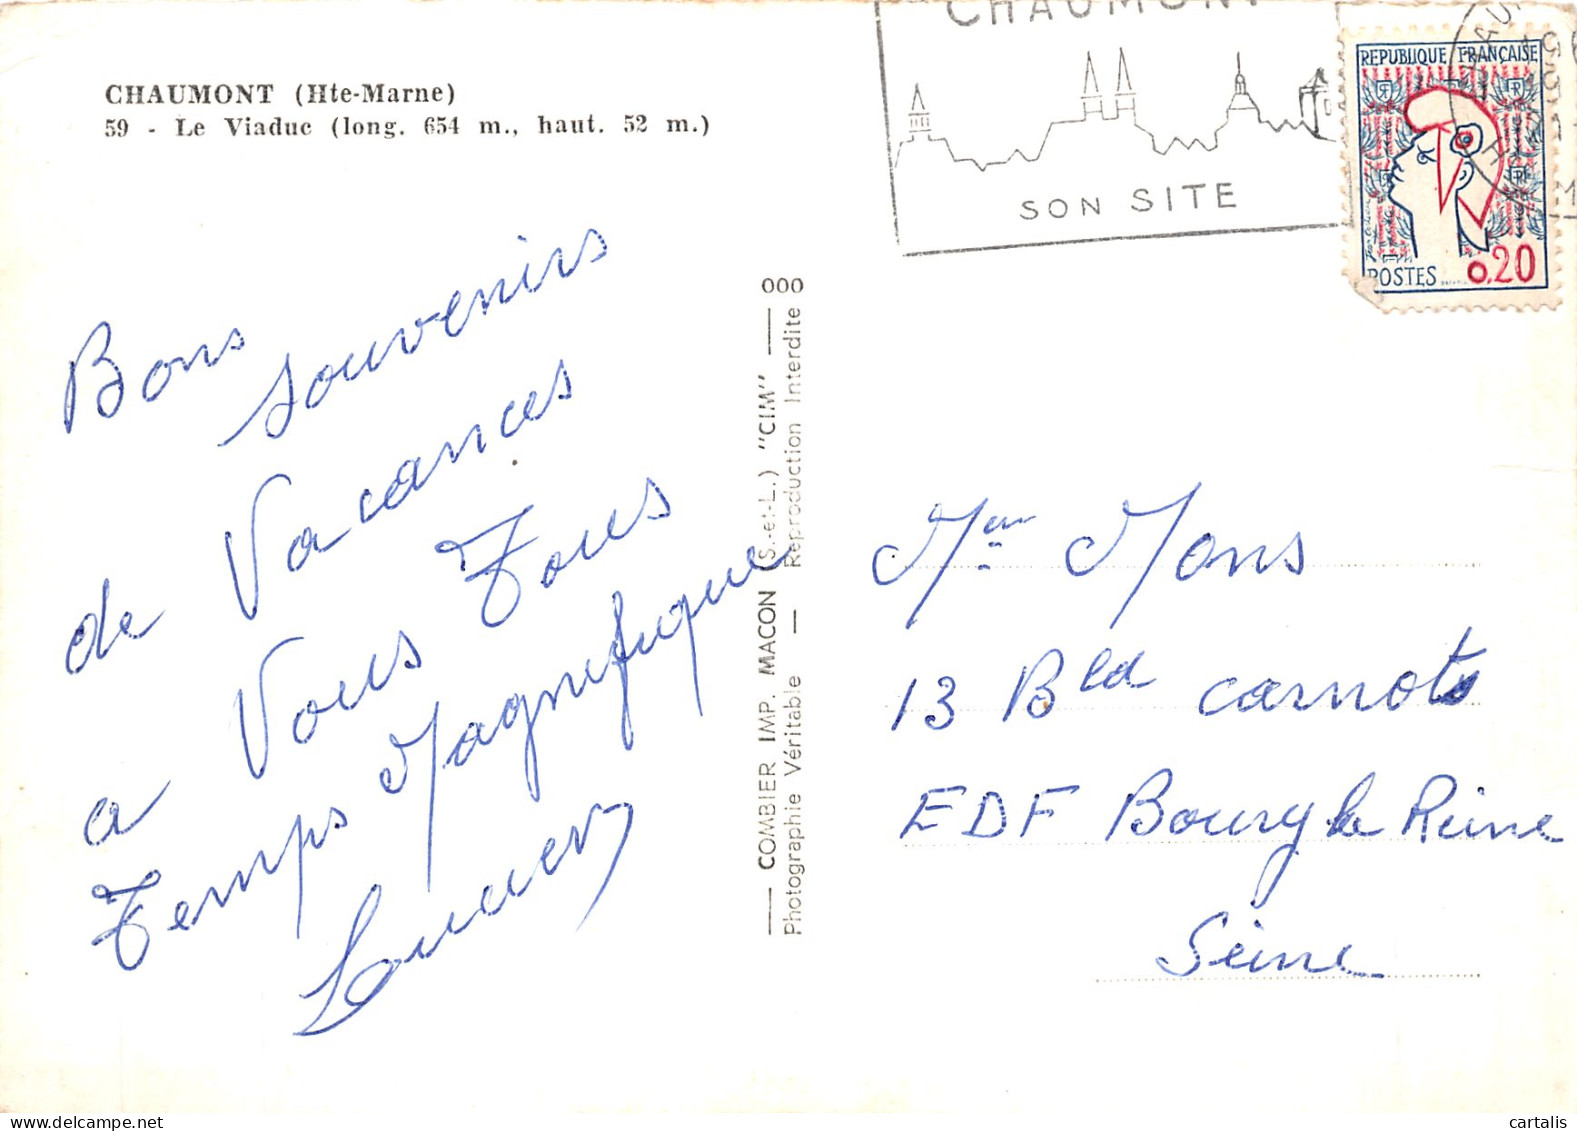 CHAUMONT (Hte-Marne)
59 - Le Viaduc (long. 654 m., haut. 52 m.)
CHAUMONT
SON SITE
REPUBLIQUE FRANÇAISE
POSTES 0,20
Bons
souvenirs
de Vacances
a Vous Tous
Temps Magnifique
000
COMBIER IMP. MACON (S.-et-L.) "CIM"
Photographie Véritable — Reproduction Interdite
Mr Mons
13 Bld carnots
EDF Boury la Reine
Seine
cartalis